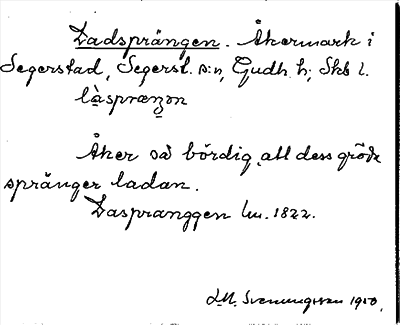 Ladsprängen. Åkermark i
Segerstad, Segerst. s:n, Gudh. h; Skb l.
Åker så bördig, att dess gröda
spränger ladan.
Laspranggen lm. 1822.
D.M. Svenungsson 1910.